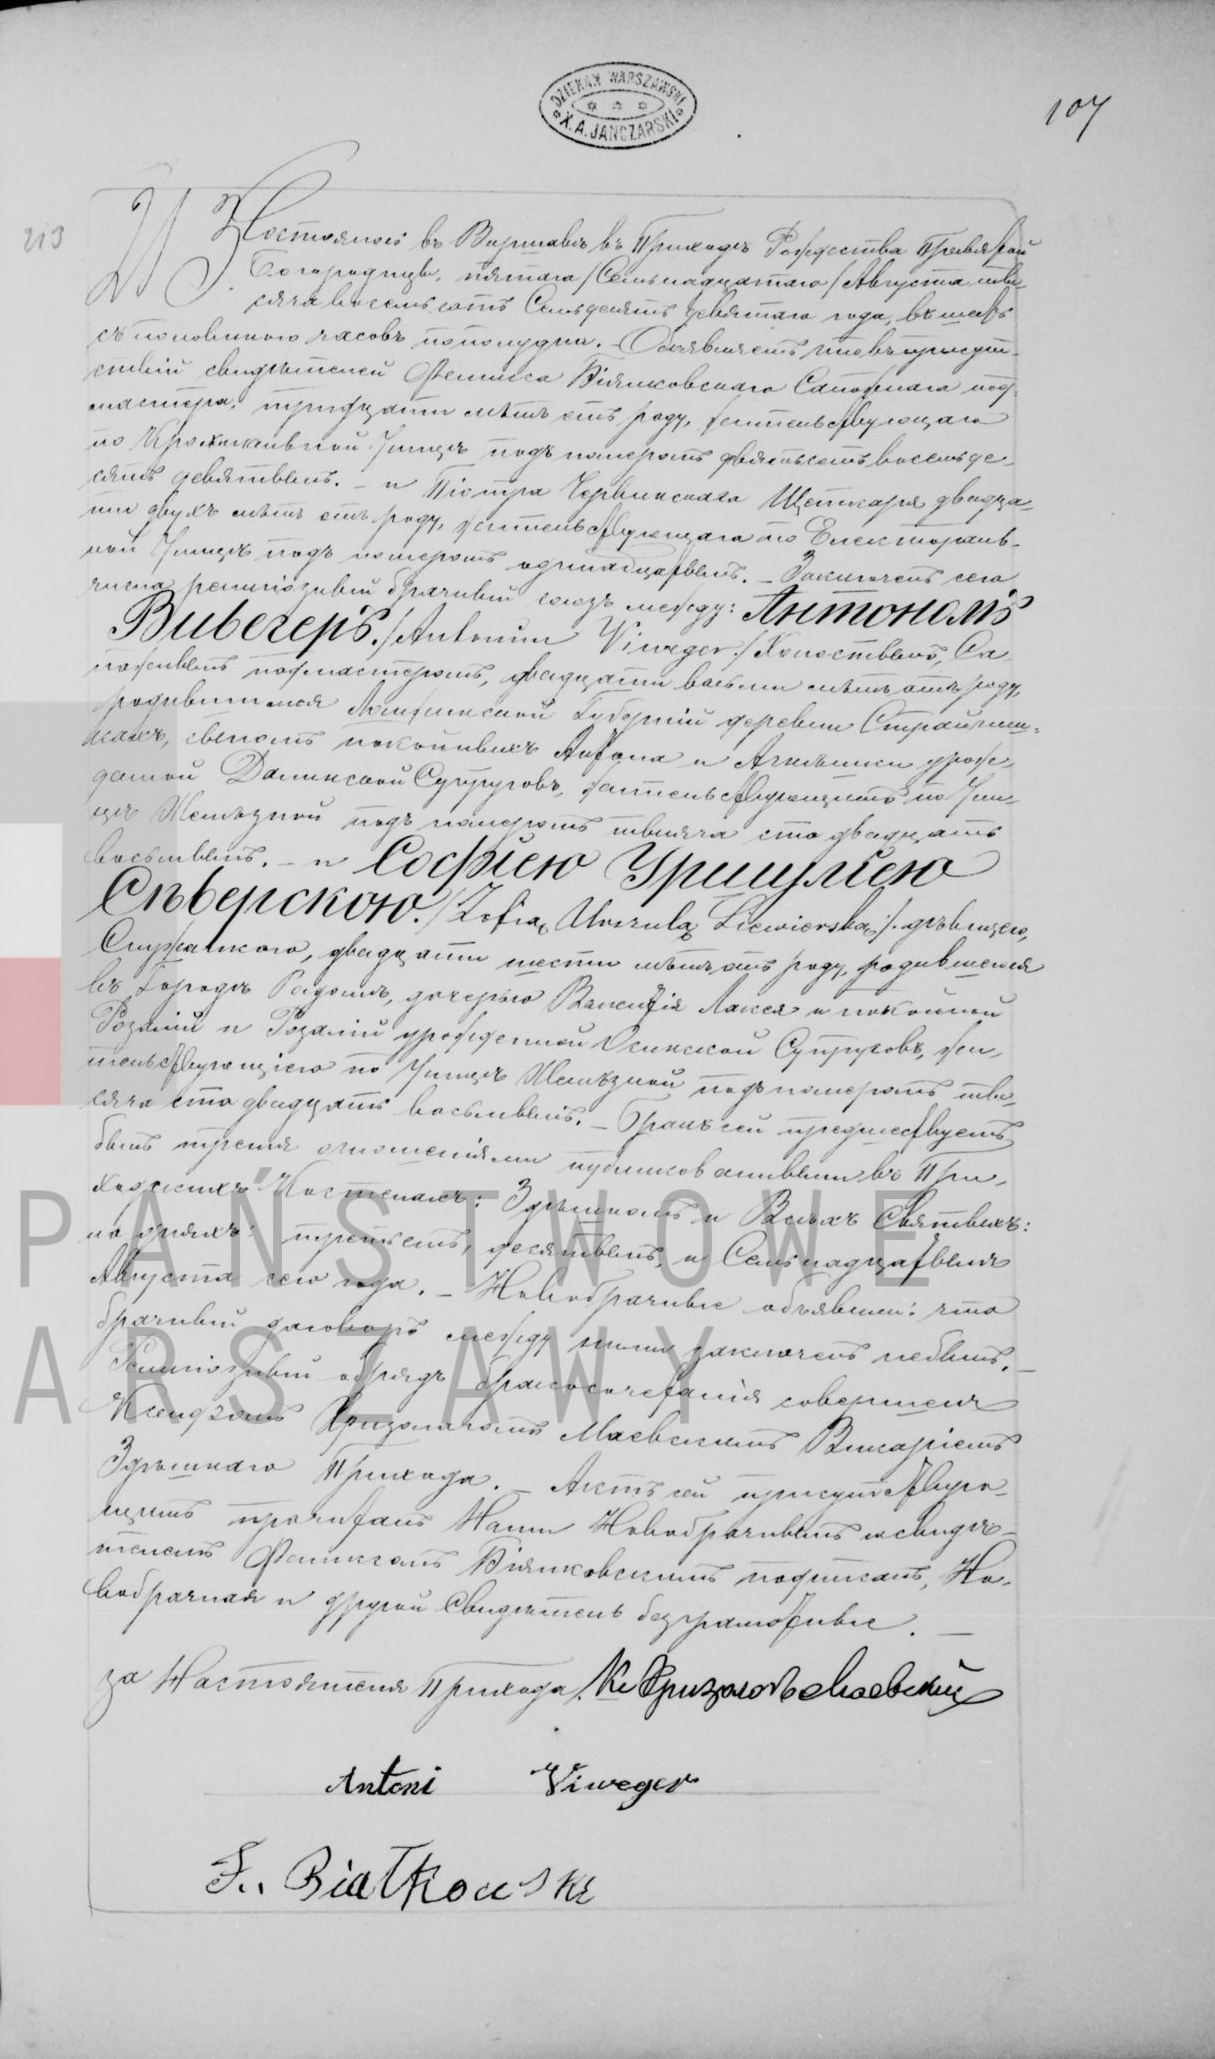 DZIEKAN WARSZAWSKI
X. A. JANCZARSKI
107
213
Состоялось въ Варшавѣ въ Приходѣ Рождества Пресвятой
Богородицы, пятаго /Семьнадцатаго/ Августа мѣ-
сяца восемь сотъ Семьдесятъ девятаго года, въ шесть
съ половиною часовъ пополудни. – Объявляемъ что въ присут-
ствіи свидѣтелей Феликса Бялковскаго Сапожнаго под-
мастера, тридцати лѣтъ отъ роду, жительствующаго
по Крохмальной Улицѣ подъ номеромъ девятьсотъ восемьде-
сятъ девятымъ. – и Піотра Червинскаго Щеткаря двадца-
ти двухъ лѣтъ отъ роду, жительствующаго по Електораль-
ной Улицѣ подъ номеромъ одинадцатымъ. – Заключенъ сего
числа религіозный брачный союзъ между: Антономъ
Вивегеръ. /Antonim Viweger./ Холостымъ, Са-
пожнымъ подмастеромъ, двадцати восьми лѣтъ отъ роду,
родившимся Ломжинской Губерніи деревни
сыномъ покойныхъ Антона и Агнешки урож-
данной Супруговъ, жительствующимъ по Ули-
цѣ Желѣзной подъ номеромъ тысяча сто двадцать
восьмымъ. – и Софіею Уршулею
Сѣверскою. /Zofią Urszulą Siewierską/. дѣвицею,
Служанкою, двадцати шести лѣтъ отъ роду, родившеюся
въ Городѣ Радомѣ, дочерью и покойной
Розаліи и Розаліи урожденной Супруговъ, жи-
тельствующею по Улицѣ Желѣзной подъ номеромъ ты-
сяча сто двадцать восьмымъ. – Бракъ сей предшествуемъ
былъ тремя оглошеніями публикованными въ При-
ходскихъ Костелахъ: Здѣшномъ и Всѣхъ Святыхъ:
по дняхъ: третьемъ, десятымъ, и Семьнадцатымъ
Августа сего года. – Новобрачные объявили: что
брачный договоръ между ними заключенъ небылъ. –
Религіозный обрядъ бракосочетанія совершенъ
Ксендзомъ Хризологомъ Маевскимъ Викаріемъ
Здѣшнаго Прихода. – Актъ сей присутствую-
щимъ прочитанъ Нами Новобрачнымъ и свидѣ-
телемъ Феликсомъ Бялковскимъ подписанъ, Но-
вобрачная и другой Свидѣтель безграмотные. –
за Настоятеля Прихода /. Кс Хризологъ Маевскій
Antoni Viweger
F. Białkowski
PAŃSTWOWE
ARSZAWY